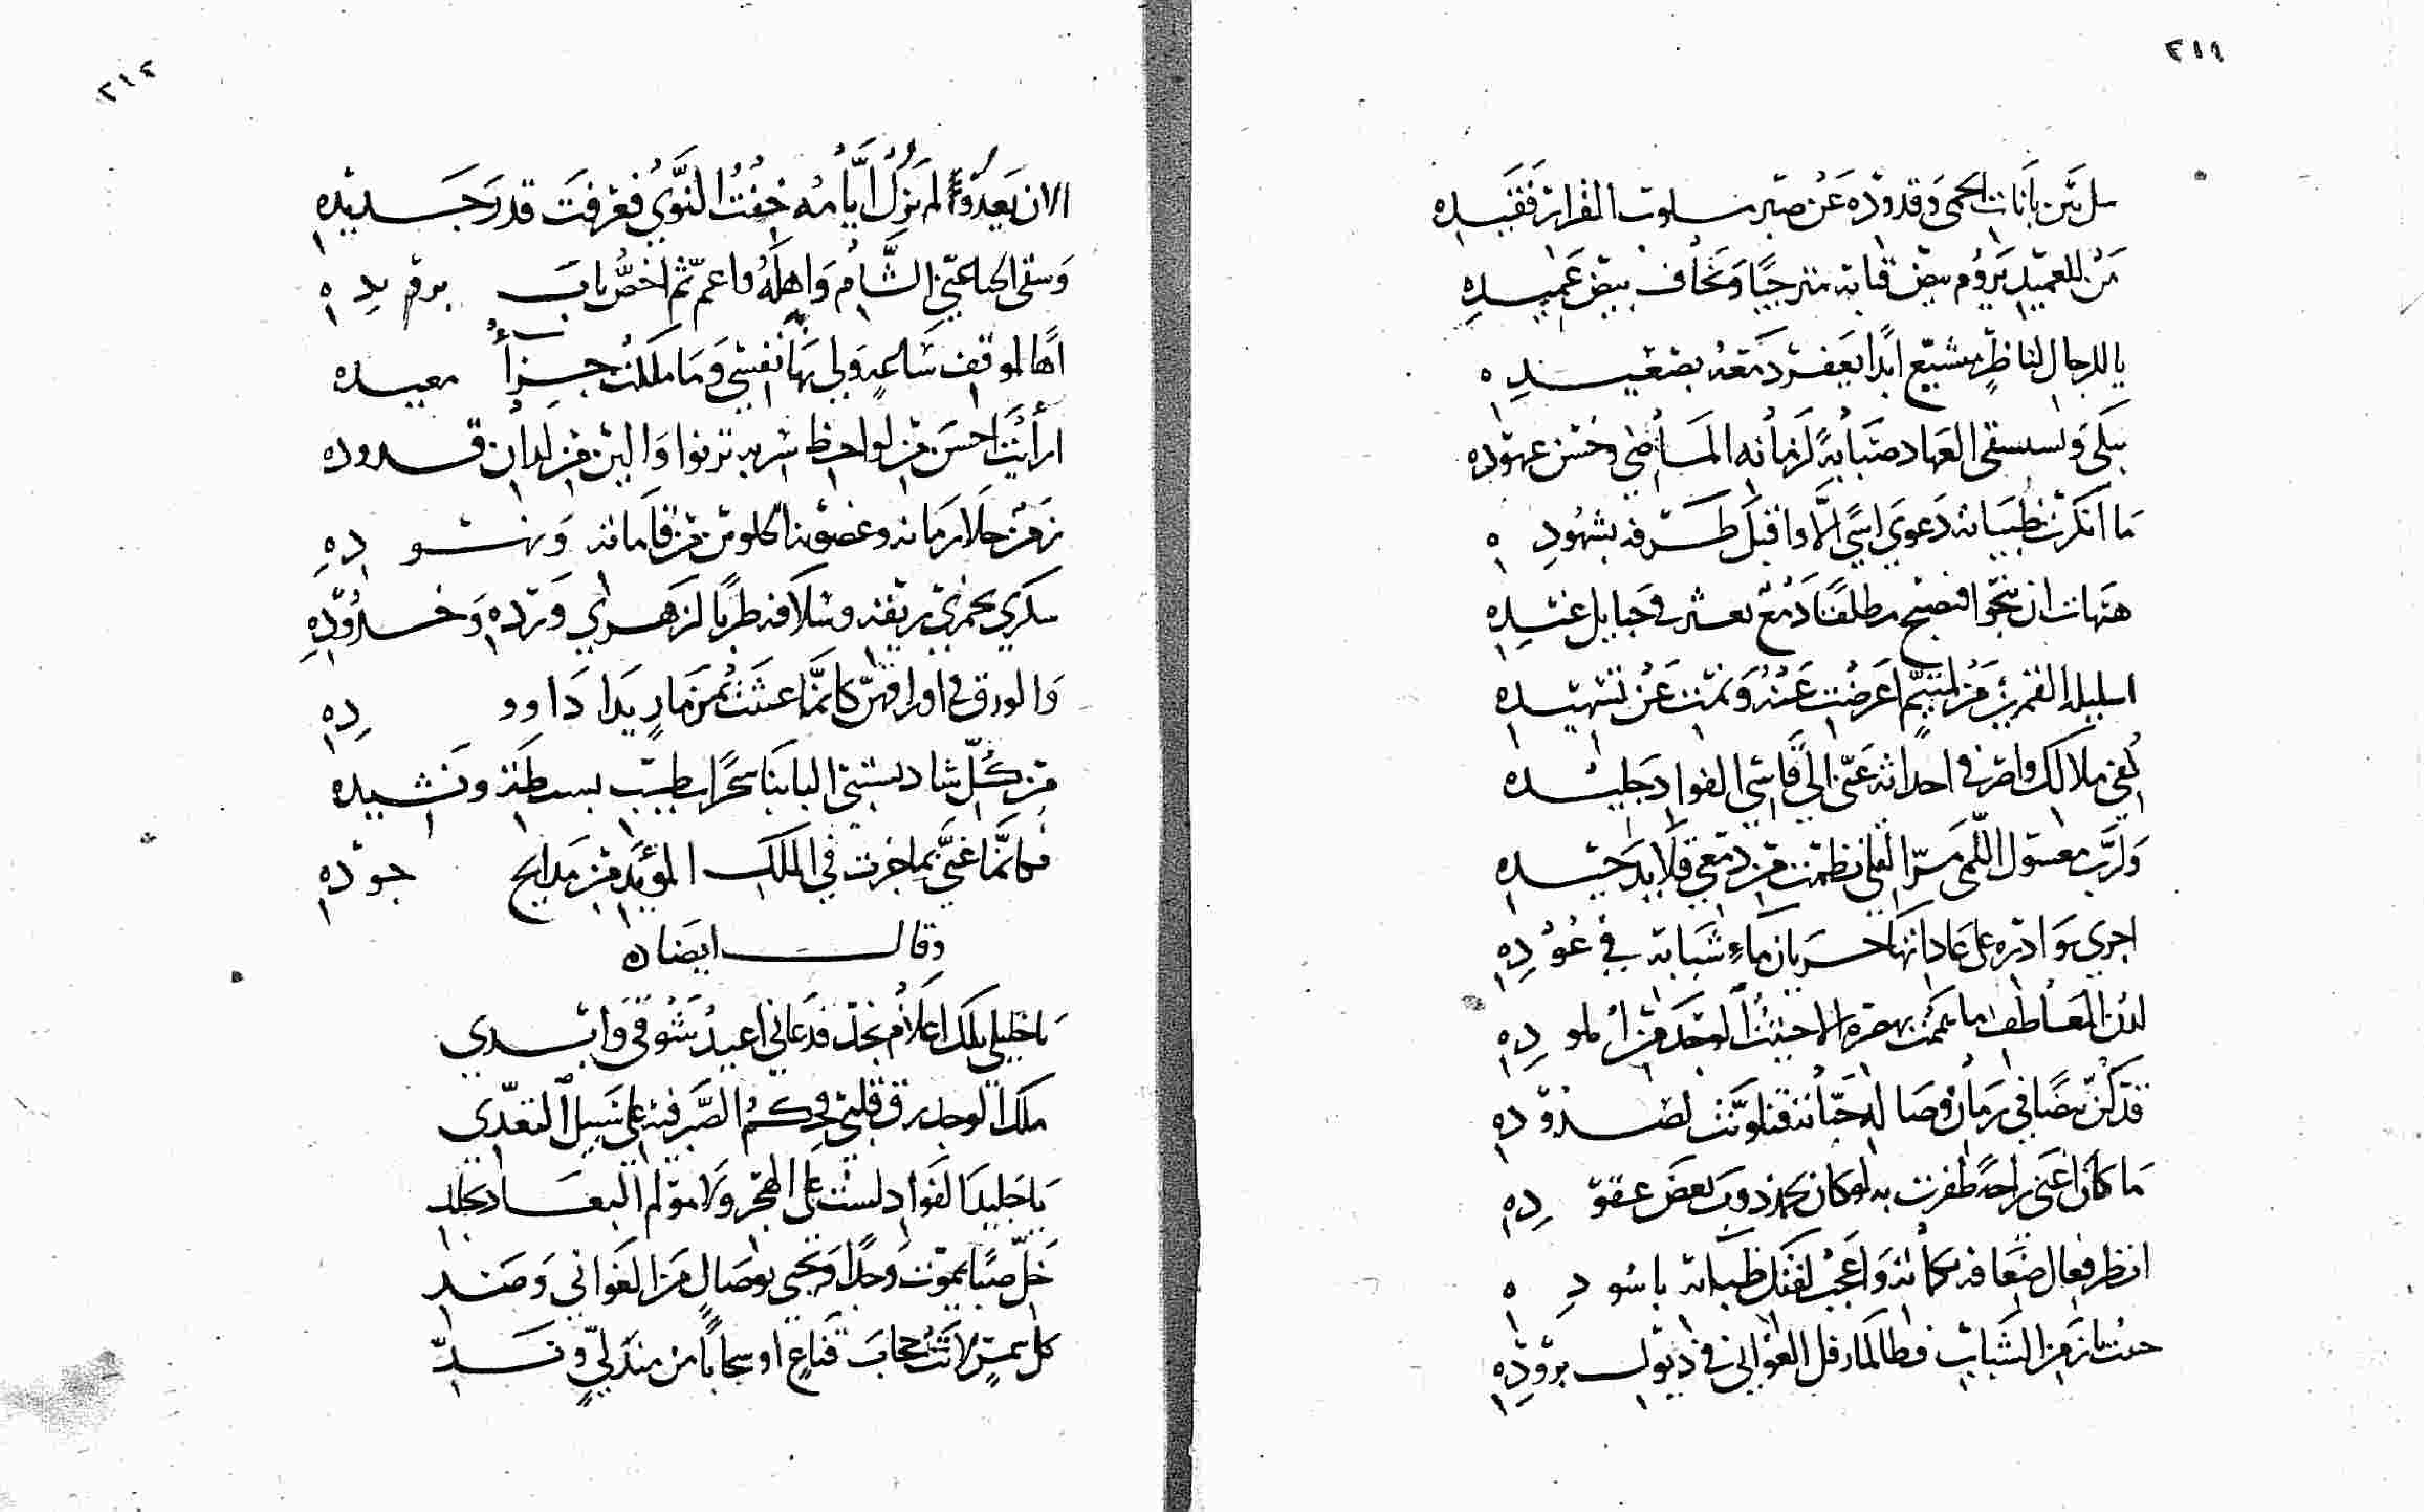 ٢١١
سل بين بانات الحمى وقدوده عن صبر مسلوب القرار فقيده
من للعميد يروم بيض قبابه مترجيا ويخاف بيض عميده
يا للرجال لناظر مشبع ابدا يعفر دمعه بصعيده
يبكي ويستسقي العهاد صبابة لزمانه الماضي وحسن عهوده
ما انكرت ظبياته دعوى اسى الا واقبل طرفه بشهوده
هيهات ان ينجوا فتصبح مطلقا دمع تعثر في حبايل غيده
اسليلة القمرين من لمتيم اعرضت عنه ونمت عن تسهيده
كفي ملالك واصرفي احداثه عني الى قاسي الفواد جليده
ولرب معسول اللمى مر القلى نظمت من دمعي قلايد جيده
اجرى بوادره على عاداتها جريان ماء شبابه في عوده
لدن المعاطف ما يممت بهصره الا جنيت الوجد من املوده
قد كن بيضا في زمان وصاله حباته فتلونت لصدوده
ما كان اغنى راحة ظفرت به لو كان يحمد دون بعض عقوده
انظر فعال ضعافه بكماته واعجب لفتك ظبائه باسوده
زمن الشباب فطالما رفل الغواني في ذيول بروده
٢١٢
الان بعدوا لم يزل ايامه خفت النوى فعرفت قدر جديده
وسقى الحيا عني الشام واهله واعم ثم اخص باب بريده
اها لموقف ساعة ولي بها نفسي وما ملكت جزأ معيده
ارأيت احسن من لواحظ سربه ترنوا والين من لدان قدوده
زمن حلا زمانه وغصوننا كلو من قاماته ونهوده
سكرى بخمري ريقه وسلافه طربا لزهري ورده وخدوده
والورق في اوراقهن كانما عبثت بمزمار يدا داووده
من كل شاد يستبي البابنا سحرا بطيب بسيطه ونشيده
فكانما غنى بما خبرت في الملك المؤيد من مدايح جوده
وقال ايضا
يا خليلي تلك اعلام نجد فدعاني اعيد شوقي وابدي
ملك الوجد رق قلبي وحكم الصبر فيه على سبيل التعدي
يا خليلا لفواد لست على الهجر ولا مولم البعاد بجلد
خل صبا يموت وجدا ويحيى بوصال من الغواني وصد
كل شمس لاثت حجاب قناع او سحابا من مندلي وند